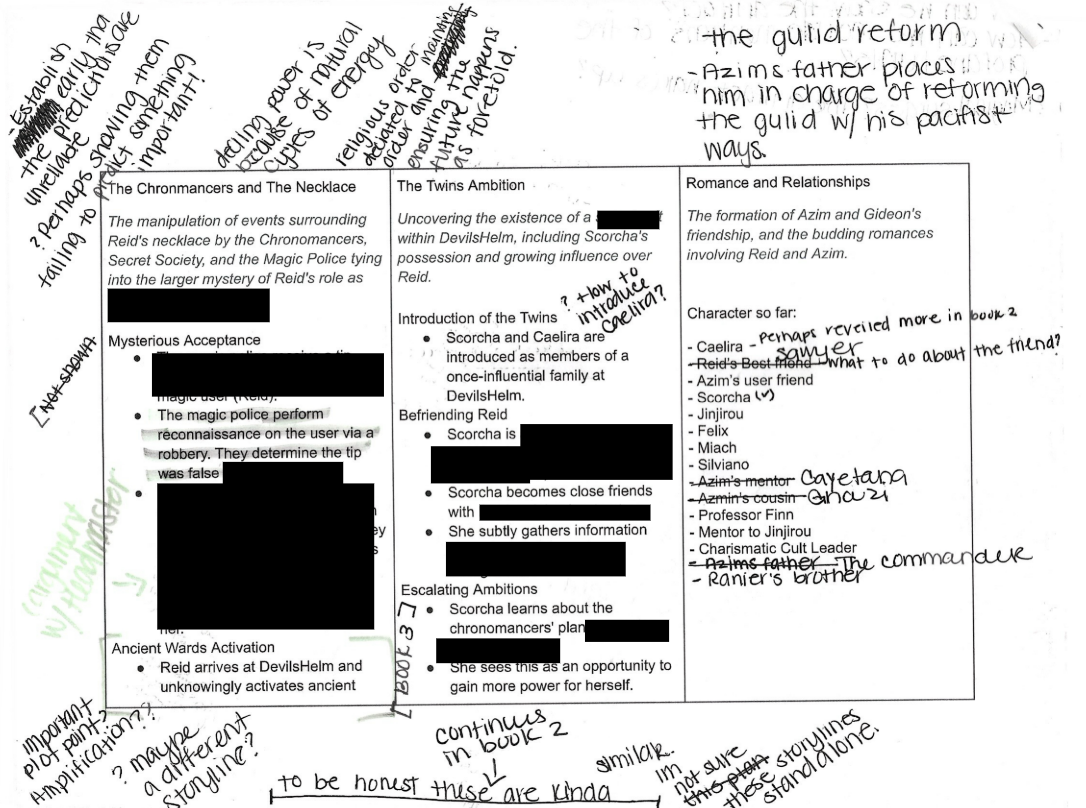 -Establish
early tha
the predictions are
unreliable
? Perhaps showing them
failing to predict something
important!
decling power is
because of natural
cycles of energy
religious order
decated to maining
order and
ensuring the
future happens
as foretold.
- the guilid reform
- Azims father places
him in charge of reforming
the guilid w/ his pacifist
ways.
The Chronmancers and The Necklace
The manipulation of events surrounding
Reid's necklace by the Chronomancers,
Secret Society, and the Magic Police tying
into the larger mystery of Reid's role as
Mysterious Acceptance
magic user (Reid).
• The magic police perform
reconnaissance on the user via a
robbery. They determine the tip
was false
her.
Ancient Wards Activation
• Reid arrives at DevilsHelm and
unknowingly activates ancient
[Not shown
(argument
w/ Headmaster
The Twins Ambition
Uncovering the existence of a s
within DevilsHelm, including Scorcha's
possession and growing influence over
Reid.
? How to
introduce
Caelira?
Introduction of the Twins
• Scorcha and Caelira are
introduced as members of a
once-influential family at
DevilsHelm.
Befriending Reid
• Scorcha is
• Scorcha becomes close friends
with
• She subtly gathers information
Escalating Ambitions
• Scorcha learns about the
chronomancers' plan
• She sees this as an opportunity to
gain more power for herself.
[BOOK 3]
Romance and Relationships
The formation of Azim and Gideon's
friendship, and the budding romances
involving Reid and Azim.
Character so far:
- Caelira - perhaps reveiled more in book 2
sawyer
- Reid's Best friend - what to do about the friend?
- Azim's user friend
- Scorcha (v)
- Jinjirou
- Felix
- Miach
- Silviano
- Azim's mentor Cayetana
- Azmin's cousin Ghazi
- Professor Finn
- Mentor to Jinjirou
- Charismatic Cult Leader
- Azims father The commander
- Ranier's brother
important
plot point?
Amplification??
? maype
a different
storyline?
continues
in book 2
to be honest these are kinda
similar.
Im
not sure
this plan
these storylines
stand alone.